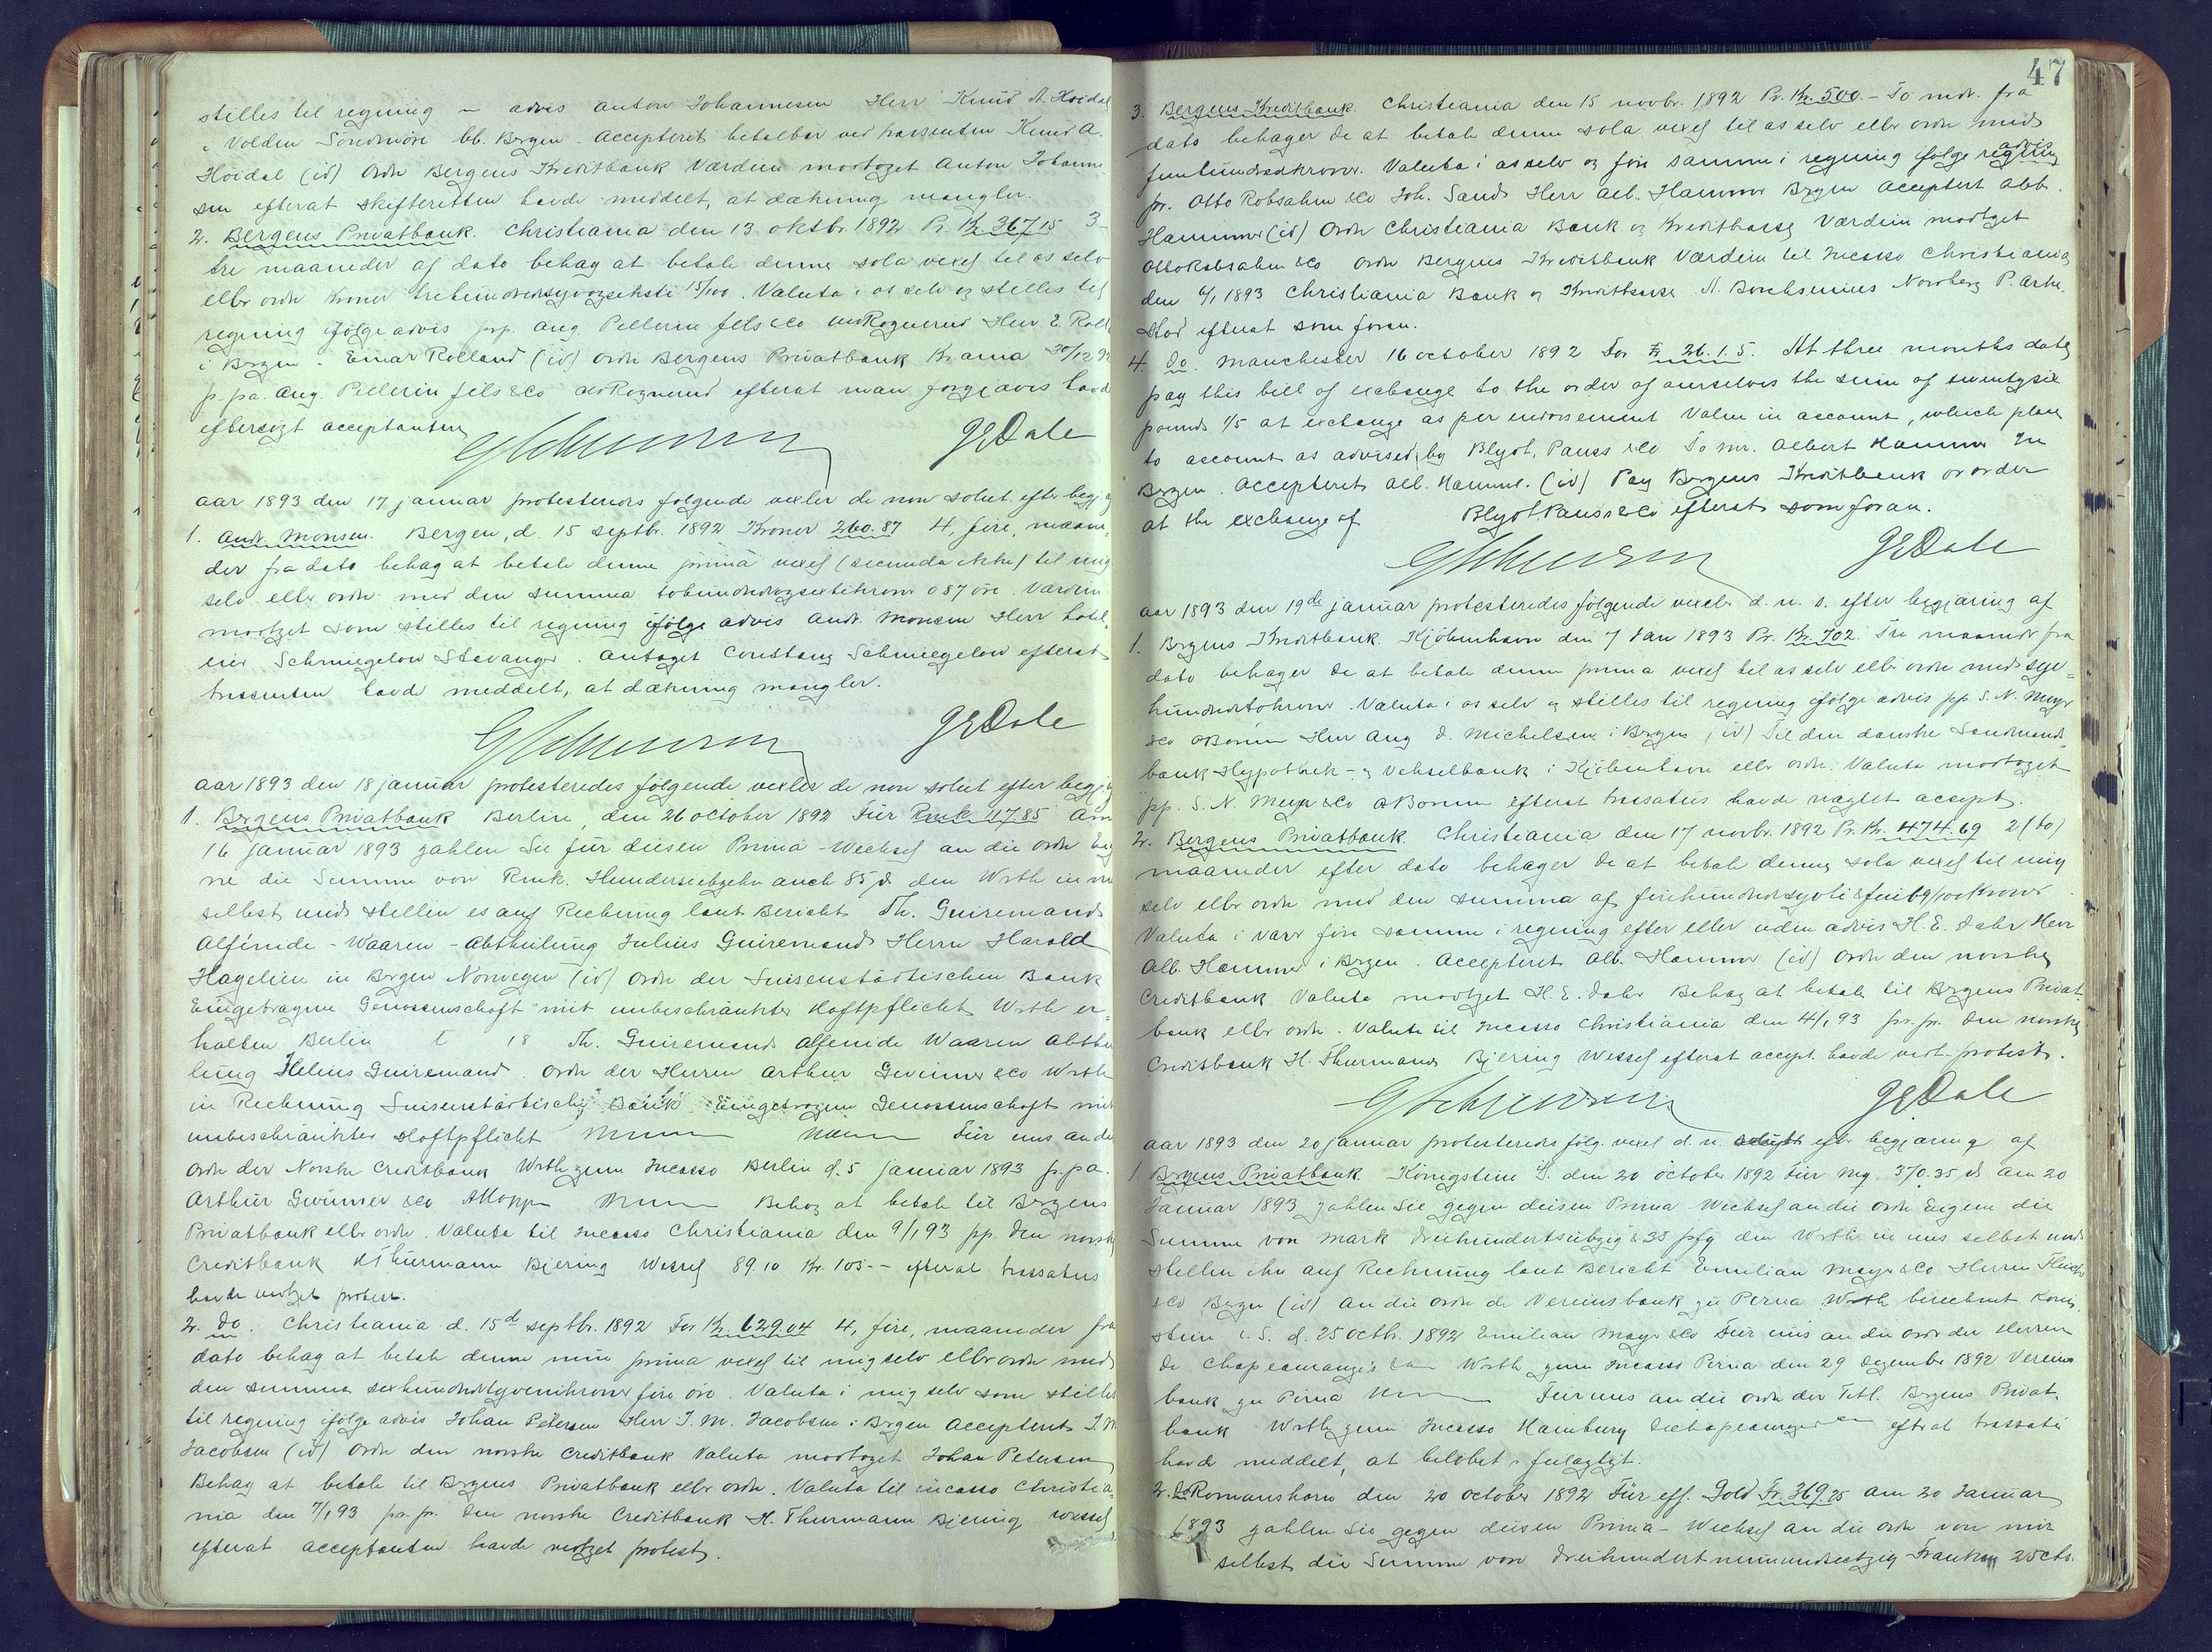 stilles til regning – advis Anton Johannesen Herr Knud A. Hoidal
i Volden Söndmöre bb. Bergen. Accepteret betalbar ved trassenten Knud A.
Höidal (id) Ordre Bergens Kreditbank Værdien modtaget Anton Johanne
sen efterat skifteretten havde meddelt, at dækning mangler.
2. Bergens Privatbank. Christiania den 13 oktbr. 1892 Pr. Kr. 367.15 3–
tre maaneder af dato behag at betale denne sola vexel til os selv
eller ordre Kroner trehundredesyvogseksti 15/100. Valuta i os selv og stilles til
regning ifölge advis pp. Aug Pellerin fils & Co Herr E. Roll
i Bergen. Einar Rolland (id) Ordre Bergens Privatbank Kr.ania 30/12 92
p. pa. Aug. Pellerin fils & Co efterat man forgjæves havde
eftersögt acceptanten
G Schumann JE Dale
Aar 1893 den 17 januar protesteredes følgende vexler de non solut efter begj
1. Andr. Monsen. Bergen, d. 15 septbr. 1892 Kroner 260.87 4, fire, maane-
der fra dato behag at betale denne prima vexel (secunda ikke) til mig
selv eller ordre med den summa tohundredeogsextikroner & 87 öre. Værdien
modtaget som stilles til regning ifölge advis Andr. Monsen Herr hotel-
eier Schmiegelow Stavanger. Antaget Constans Schmiegelow efterat
trassenten havde meddelt, at dækning mangler.
JE Dale
Aar 1893 den 18 januar protesteredes følgende vexler de non solut efter begj
1. Bergens Privatbank Berlin, den 26 october 1892 Für Rmk. 117.85 Am
16 Januar 1893 zahlen Sie für diesen Prima-Wechsel an die Ordre Eig
ne die Summe von Rmk. Hundertsiebzehn auch 85 d. den Werth in mir
selbst und stellen es auf Rechnung laut Bericht Th. Guiremand
Alfénide-Waaren-Abtheilung Julius Guiremand Herrn Harold
Hagelien in Bergen Norwegen (id) Ordre der Luisenstädtischen Bank
Eingetragene Genossenschaft mit unbeschränkter Haftpflicht Werth er-
halten Berlin 18 Th. Guiremand Alfenide Waaren Abthei
lung Guiremand. Ordre der Herren Arthur Gwinner & Co Werth
in Rechnung Luisenstädtische Bank Eingetragene Genossenschaft mit
unbeschränkter Haftpflicht Für uns an de
Ordre der Norske Creditbank Werth zum Incasso Berlin d. 5 januar 1893 p. pa.
Arthur Gwinner & Co Behag at betale til Bergens
Privatbank eller ordre. Valuta til Incasso Christiania den 9/1 93 pp. Den norske
Creditbank H Thurmann Bjering Wessel 89.10 Kr. 105.– efterat trassatus
havde vedtaget protest.
2. Do. Christiania d. 15d septbr. 1892 For Kr. 629.04 4, fire, maaneder fra
dato behag at betale denne min prima vexel til mig selv eller ordre med
den summa sexhundredetyvenikroner fire öre. Valuta i mig selv som stilles
til regning ifölge advis Johan Petersen Herr J. M. Jacobsen i Bergen Accepteret J. M
Jacobsen (id) Ordre den norske Creditbank Valuta modtaget Johan Petersen
Behag at betale til Bergens Privatbank eller ordre. Valuta til incasso Christia-
nia den 7/1 93 pr. pr. Den norske Creditbank H. Thurmann Bjering Wessel
efterat acceptanten havde vedtaget protest.
47
3. Bergens Kreditbank. Christiania den 15 novbr. 1892 Pr. Kr. 500.– To mdr. fra
dato behager de at betale denne sola vexel til os selv eller ordre med
femhundredekroner. Valuta i os selv og före samme i regning ifölge advis
pr. Otto Robsahm & Co Joh. Sand Herr Alb. Hammer Bergen Accepteret Alb.
Hammer (id) Ordre Christiania Bank og Kreditkasse Værdien modtaget
Otto Robsahm & Co Ordre Bergens Kreditbank Værdien til Incasso Christiania
den 6/1 1893 Christiania Bank og Kreditkasse N. Borchsenius P. Arke
stad efterat som foran.
4. Do. Manchester 16 october 1892 For £ 26.1.5. At three months date
pay this bill of exchange to the order of ourselves the sum of twentysix
pounds 1/5 at exchange as per indorsement Value in account, which place
to account as advised by Blyot, Pauss & Co To mr. Albert Hammer In
Bergen. Accepteret Alb. Hammer. (id) Pay Bergens Kreditbank or order
at the exchange of Blyot, Pauss & Co efterat som foran.
JE Dale
Aar 1893 den 19de januar protesteredes følgende vexler d. n. s. efter begjæring af
1. Bergens Kreditbank Kjöbenhavn den 7 Jan 1893 Pr. Kr. 702 Tre maaneder fra
dato behager de at betale denne prima vexel til os selv eller ordre med syv-
hundredetokroner. Valuta i os selv og stilles til regning ifölge advis pp. S. N. Meyer
& Co Herr Aug D. Michelsen i Bergen (id) Til den danske Landmands-
bank Hypothek- og Vekselbank i Kjöbenhavn eller ordre. Valuta modtaget
pp. S. N. Meyer & Co efterat trassatus havde nægtet accept.
2. Bergens Privatbank. Christiania den 17 novbr. 1892 Pr. Kr. 474.69 2 (to)
maaneder efter dato behager de at betale denne sola vexel til mig
selv eller ordre med den summa af firehundredesyvti & fire 69/100 Kroner
Valuta i varer före samme i regning efter eller uden advis H. E. Dahr Herr
Alb. Hammer i Bergen. Accepteret Alb. Hammer (id) Ordre den norske
Creditbank Valuta modtaget H. E. Dahr Behag at betale til Bergens Privat-
bank eller ordre. Valuta til Incasso Christiania den 4/1 93 pr. pr. Den norske
Creditbank H. Thurmann Bjering Wessel efterat accept. havde vedt. protest.
JE Dale
Aar 1893 den 20 januar protesteredes følg. vexel d. n. efter begjæring af
1. Bergens Privatbank. Königstein d. den 20 october 1892 Für Mg. 370.35 d am 20
Januar 1893 zahlen Sie gegen diesen Prima Wechsel an die Ordre Eigene die
Summe von Mark dreihundertsiebzig & 35 pfg den Werth in uns selbst und
stellen ihn auf Rechnung laut Bericht Emilian Mayer & Co Herren
& Co Bergen (id) An die Ordre de Vereinsbank zu Pirna Werth berechnet König-
stein i. S. d. 25 octbr. 1892 Emilian Mayer & Co Für uns an die Ordre der Herren
Werth zum Incasso Pirna den 29 Dezember 1892 Vereins
bank zu Pirna Für uns an die Ordre der Titl. Bergens Privat-
bank Werth zum Incasso Hamburg efterat trassatus
havde meddelt, at belöbet er feilagtigt.
2. Do Romanshorn den 20 october 1892 Für eff. Gold Fr. 369.25 am 20 Januar
1893 zahlen Sie gegen diesen Prima-Wechsel an die Ordre von mir
selbst die Summe von Dreihundert neunundsechzig Franken 25 cts.